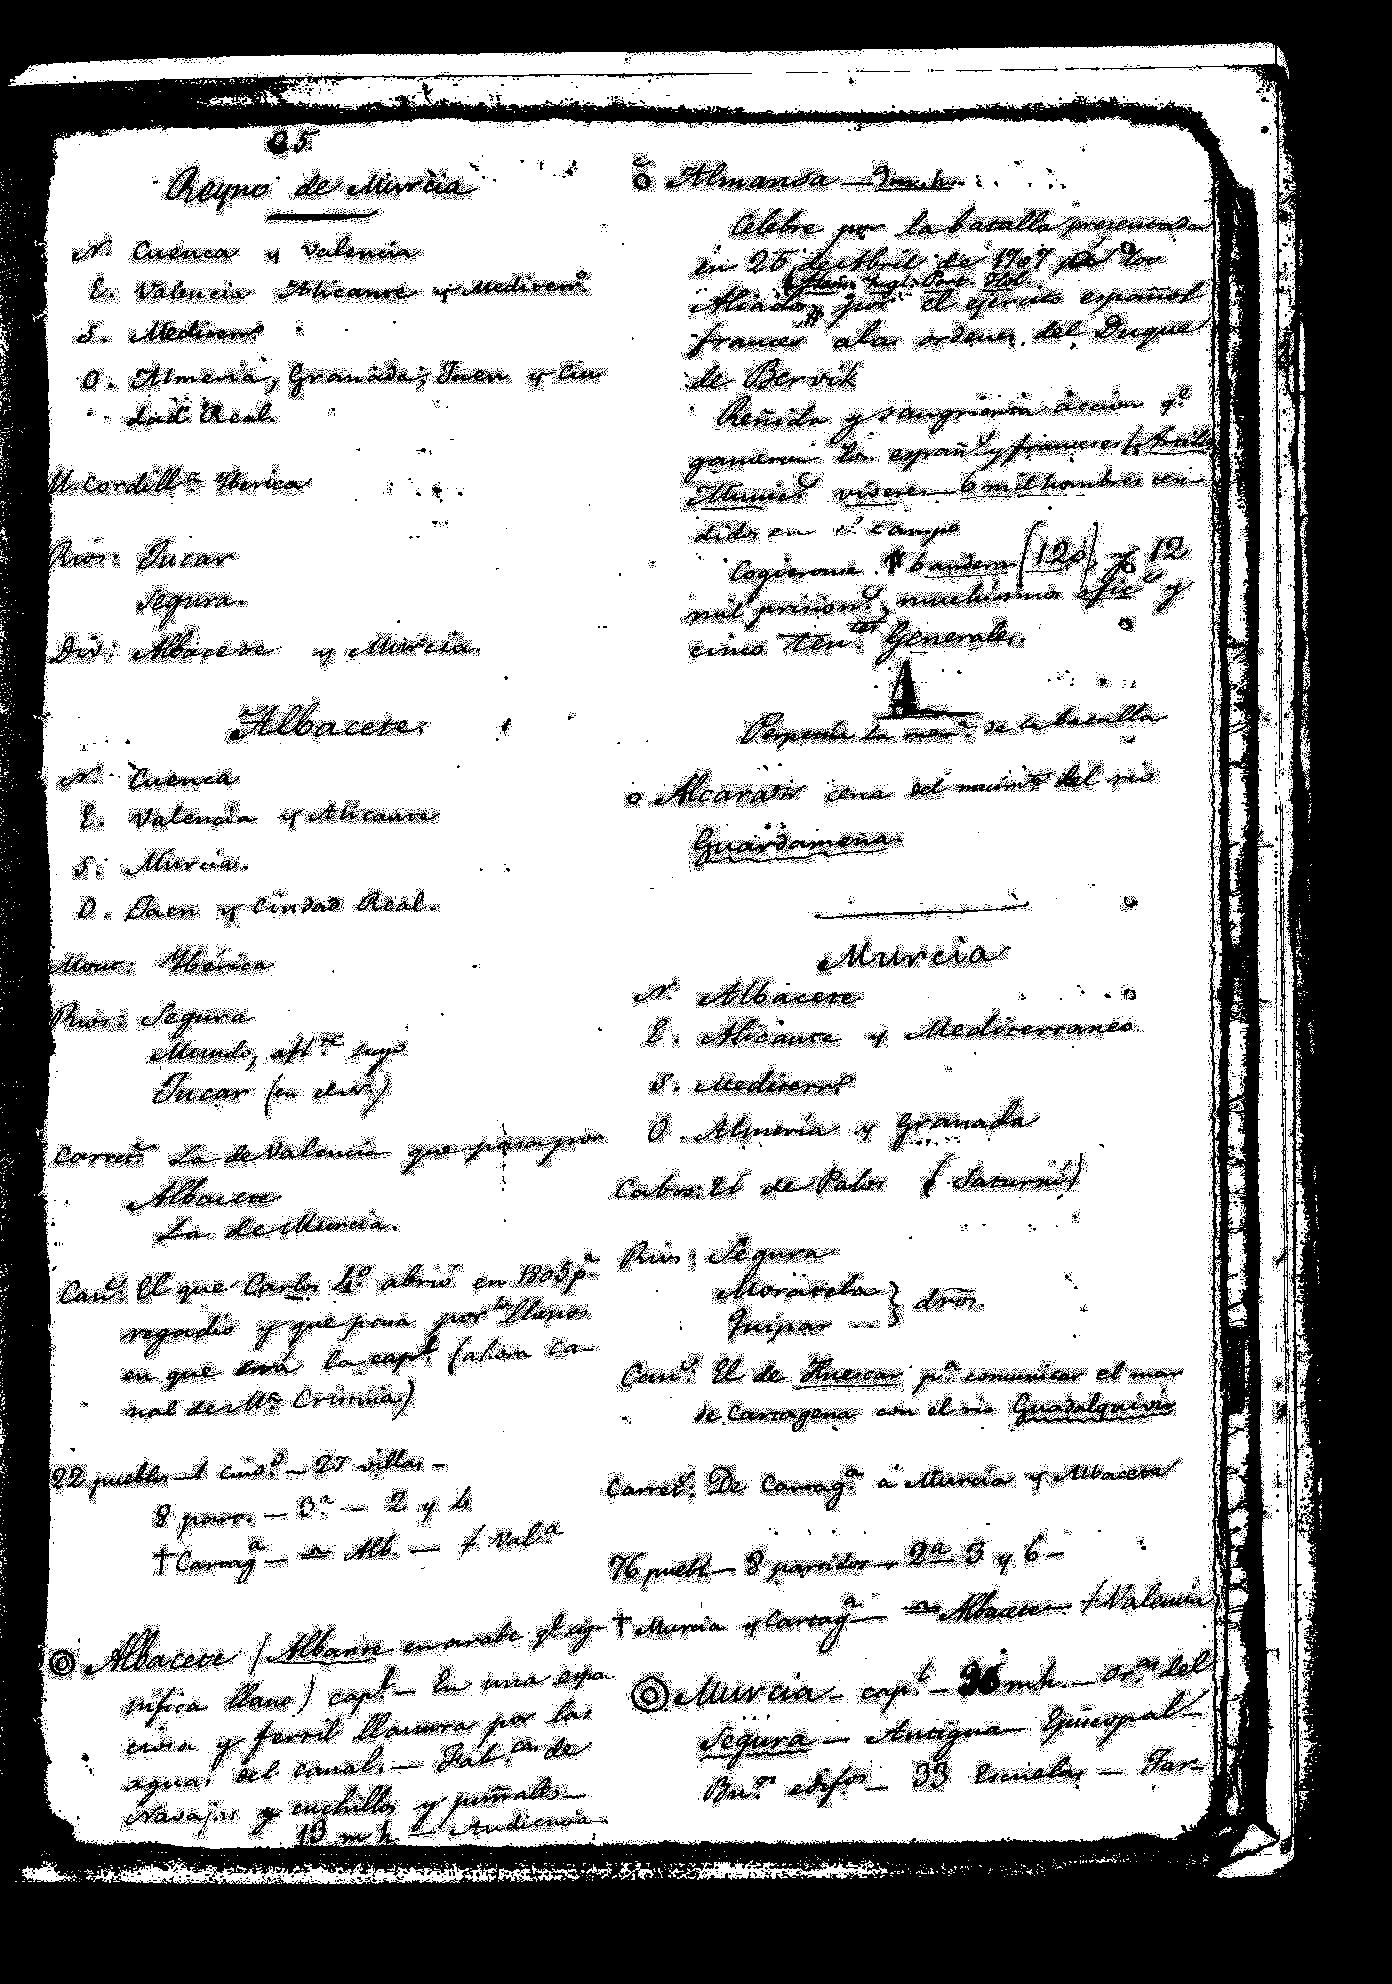 25
Reyno de Murcia
N. Cuenca y Valencia
E. Valencia Alicante y Mediterrº
S. Mediterrº
O. Almeria, Granada, Jaen y Ciu
dad Real.
M. Cordillª Iberica
Rios: Jucar
Segura.
Div: Albacete y Murcia
Albacete
N. Cuenca
E. Valencia y Alicante
S. Murcia.
O. Jaen y Ciudad Real.
Mont: Iberica
Rios: Segura
Mundo, afl.te suyo
Jucar
Carret. La de Valencia que pasa por
Albacete
La de Murcia.
Canl: El que Carlos 4º abrió en 1805 pª
regadio y que pasa por los llanos
en que está la capl (ahora Ca-
nal de Mª Cristina)
22 pueblos — 1 ciudd — 27 villas —
8 parr. — 3ª — 2 y 4
† Cartagª — Alb. — Valª
Albacete (Albasit en arabe que sig
nifica llano) capl — En una espa
ciosa y fertil llanura por las
aguas del canal. — Fabcon de
Navajas y cuchillos y puñales —
13 m h — Audiencia
Almansa — 9 m. h.
Célebre por la batalla presentada
en 25 de Abril de 1707 por los
Aliados por el ejército español
francés a las ordenes del Duque
de Bervik
Reñida y sangrienta accion qe
ganaron los españls y franceses
vieron 6 mil hombres ten-
didos en el campo
Cogieron banderas (120) y 12
mil prisions, muchisimos ofic y
cinco Tents Generales.
Perpetua la mema de la batalla
Alcaraz cerca del nacimto del rio
Guardamena
Murcia
N. Albacete
E. Alicante y Mediterraneo
S. Mediterrº
O. Almeria y Granada
Cabos: El de Palos (Saturni)
Rios: Segura
Moratalla
Quipar — } dros.
Canl: El de Huescar pª comunicar el mar
de Cartagena con el rio Guadalquivir
Carret: De Cartagª á Murcia y Albacete
76 puebl — 8 partidos — 2ª 3 y 6 —
† Murcia y Cartagª — Albacete — Valencia
Murcia — capl — 36 m h. — del
Segura — Antigua — Episcopal —
Bus edifos — 33 Escuelas — Far-